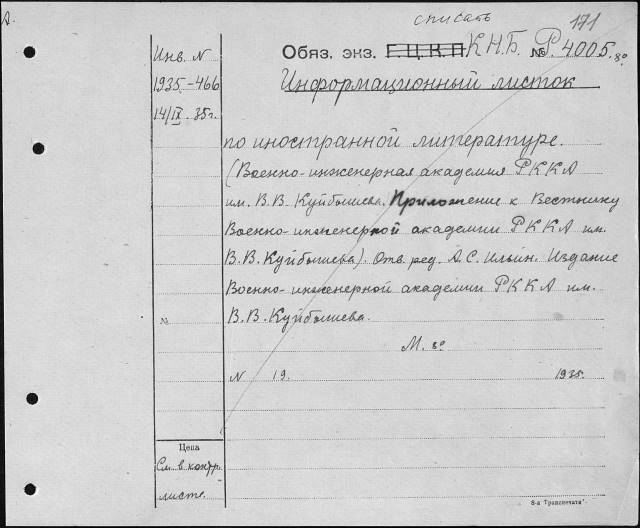 А.
списать
171
Обяз. экз. Г.Ц.К.П. К.Н.Б. № Р.4005.8°
Инв. N
1935.-466
14/IX-35г.
Информационный листок
по иностранной литературе.
(Военно-инженерная академия РККА
им. В.В. Куйбышева. Приложение к Вестнику
Военно-инженерной академии РККА им.
В.В. Куйбышева). Отв. ред. А.С. Ильин. Издание
Военно-инженерной академии РККА им.
В.В. Куйбышева.
№
М. 8°
N 19. 1935.
Цена
См. в контр.
листе.
8-я „Транспечать"